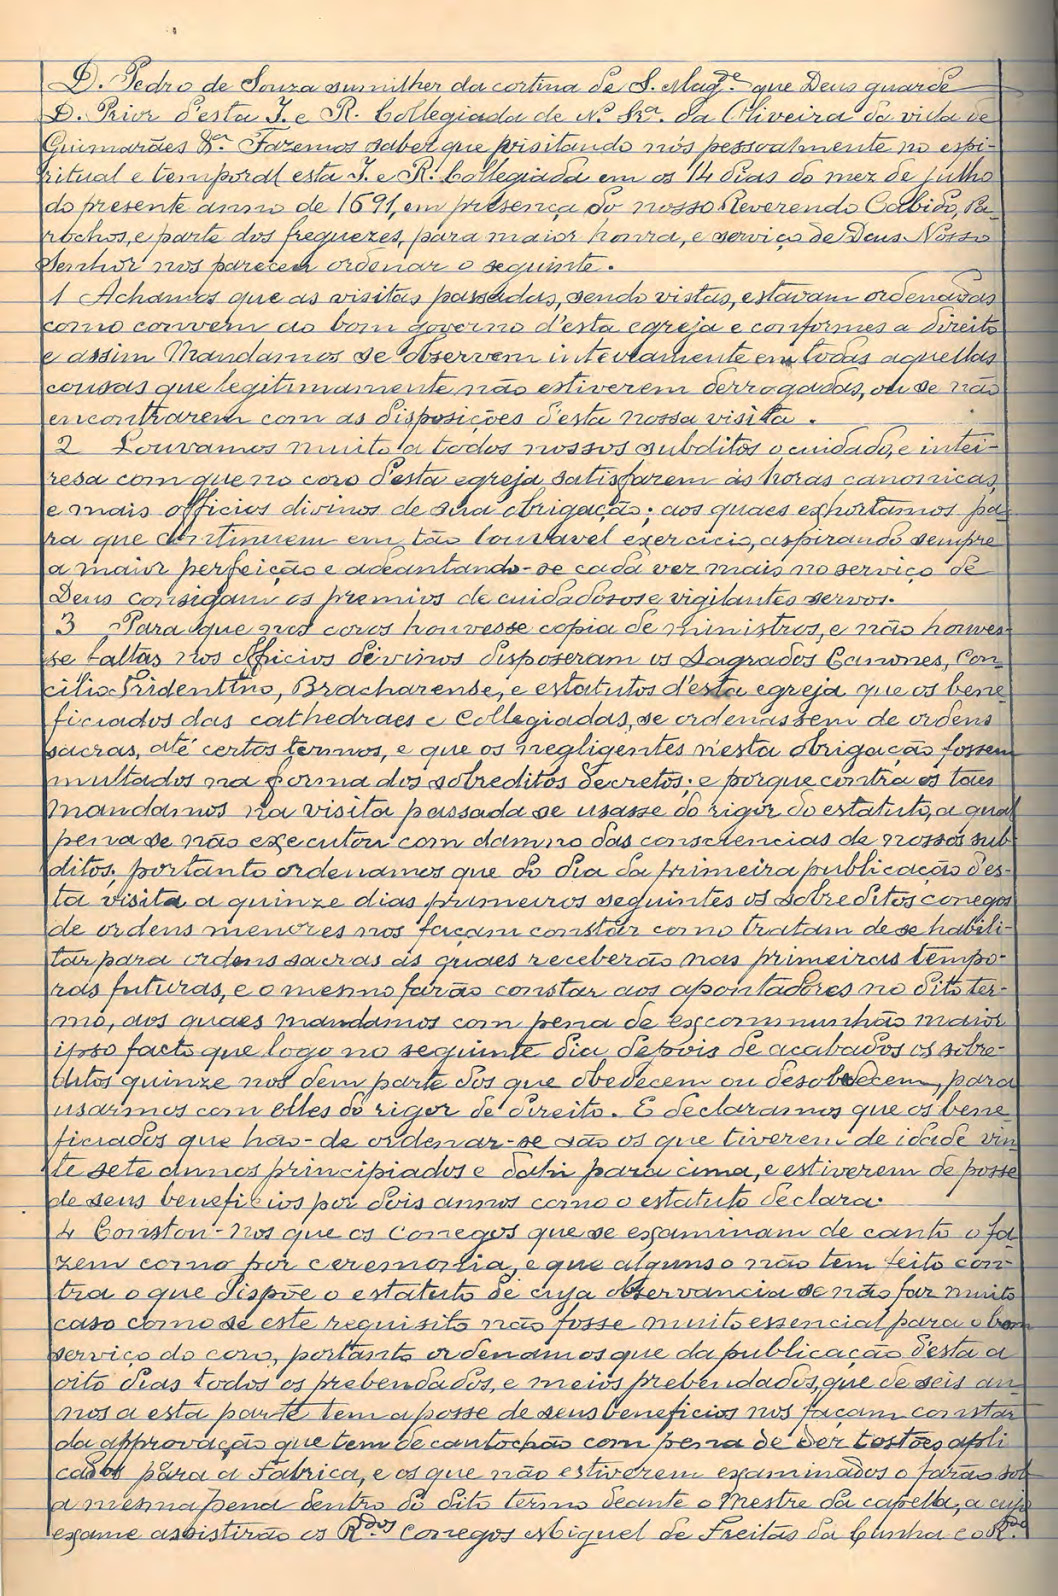 D. Pedro de Souza sumilher da cortina de S. Magde. que Deus guarde
D. Prior d'esta I. e R. Collegiada de Nª. Srª. da Oliveira da villa de
Guimarães &ª. Fazemos saber que visitando nós pessoalmente no espi-
ritual e temporal esta I. e R. Collegiada em os 14 dias do mez de julho
do presente anno de 1691, em presença do nosso Reverendo Cabido, Pa-
rochos, e parte dos freguezes, para maior honra, e serviço de Deus Nosso
Senhor nos pareceu ordenar o seguinte.
1 Achamos que as visitas passadas, sendo vistas, estavam ordenadas
como convem ao bom governo d'esta egreja e conformes a direito
e assim Mandamos se observem inteiramente em todas aquellas
cousas que legitimamente não estiverem derrogadas, ou se não
encontrarem com as disposições d'esta nossa visita.
2 Louvamos muito a todos nossos subditos o cuidado, e intei-
resa com que no coro d'esta egreja satisfazem ás horas canonicas,
e mais officios divinos de sua obrigação; aos quaes exhortamos pa-
ra que continuem em tão louvavel exercicio, aspirando sempre
a maior perfeição e adeantando-se cada vez mais no serviço de
Deus consigam os premios de cuidadosos e vigilantes servos.
3 Para que nos coros houvesse copia de ministros, e não houves-
se faltas nos officios divinos disposeram os Sagrados Canones, Con-
cilio Tridentino, Bracharense, e estatutos d'esta egreja que os bene-
ficiados das cathedraes e Collegiadas, se ordenassem de ordens
sacras, até certos termos, e que os negligentes n'esta obrigação fossem
multados na forma dos sobreditos decretos; e porque contra os taes
mandamos na visita passada se usasse do rigor do estatuto, a qual
pena se não executou com damno das consciencias de nossos sub-
ditos; portanto ordenamos que do dia da primeira publicação d'es-
ta visita a quinze dias primeiros seguintes os sobreditos conegos
de ordens menores nos façam constar como tratam de se habili-
tar para ordens sacras ás quaes receberão nas primeiras tempo-
ras futuras, e o mesmo farão constar aos apontadores no dito ter-
mo, aos quaes mandamos com pena de excommunhão maior
ipso facto que logo no seguinte dia depois de acabados os sobre-
ditos quinze nos dem parte dos que obedecem ou desobedecem, para
usarmos com elles do rigor de direito. E declaramos que os bene
ficiados que hão-de ordenar-se são os que tiverem de idade vin
te sete annos principiados e dahi para cima, e estiverem de posse
de seus beneficios por dois annos como o estatuto declara.
4 Constou-nos que os Conegos que se examinam de canto o fa-
zem como por ceremonia, e que alguns o não tem feito con-
tra o que dispõe o estatuto de cuja observancia se não faz muito
caso como se este requisito não fosse muito essencial para o bom
serviço do coro, portanto ordenamos que da publicação d'esta a
oito dias todos os prebendados, e meios prebendados, que de seis an-
nos a esta parte tem a posse de seus beneficios nos façam constar
da approvação que tem de cantochão com pena de dez tostões apli
cados para a Fabrica, e os que não estiverem examinados o farão sob
a mesma pena dentro do dito termo deante o Mestre da capella, a cujo
exame assistirão os Rdos. Conegos Miguel de Freitas da Cunha e o Rdo.